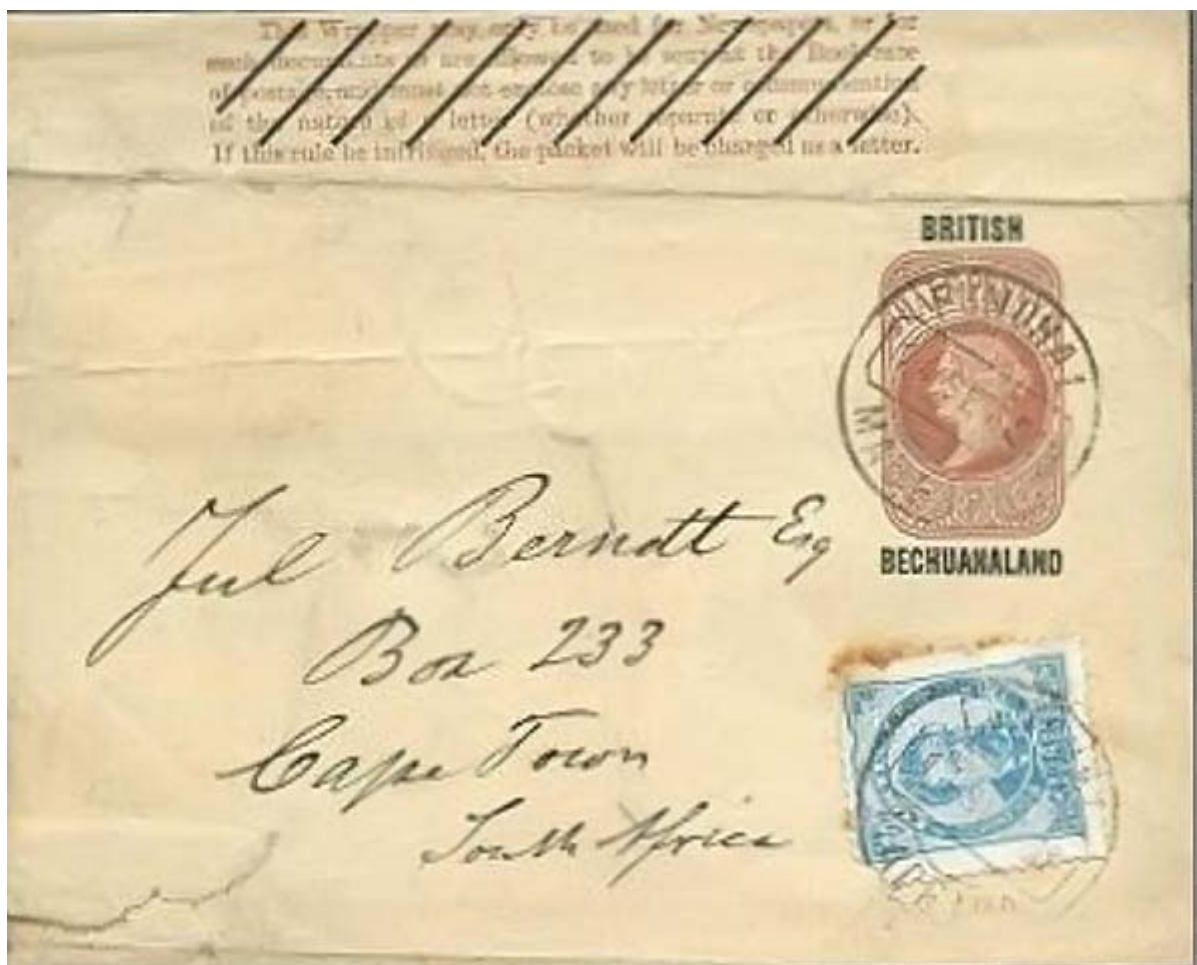 This Wrapper may only be used for Newspapers, or for
such documents as are allowed to be sent at the Book-rate
of postage, and must not enclose any letter or communication
of the nature of a letter (whether separate or otherwise).
If this rule be infringed, the packet will be charged as a letter.
BRITISH
BECHUANALAND
Jul Berndt Esq
Box 233
Cape Town
South Africa